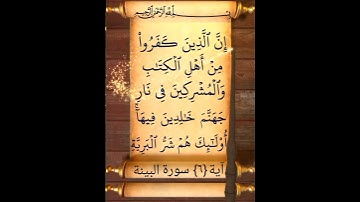 بسم الله الرحمن الرحيم
إِنَّ ٱلَّذِينَ كَفَرُوا۟
مِنْ أَهْلِ ٱلْكِتَٰبِ
وَٱلْمُشْرِكِينَ فِى نَارِ
جَهَنَّمَ خَٰلِدِينَ فِيهَآ
أُو۟لَٰٓئِكَ هُمْ شَرُّ ٱلْبَرِيَّةِ
آية {٦} سورة البينة